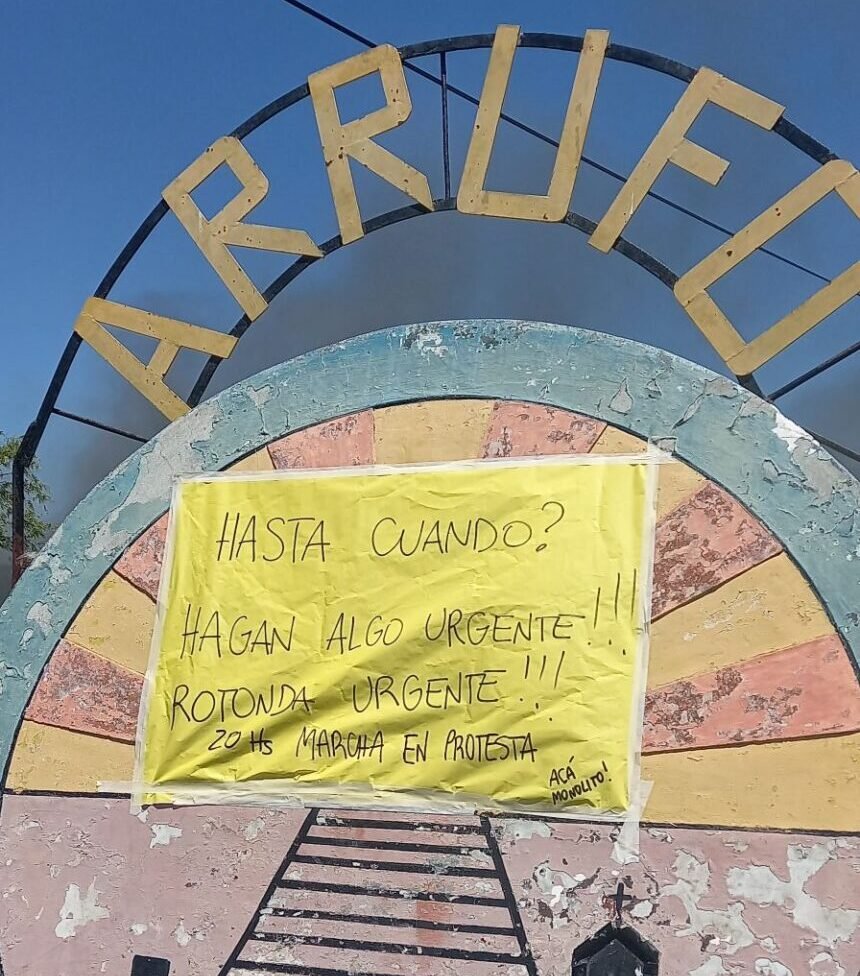 ARRUFO
HASTA CUANDO?
HAGAN ALGO URGENTE!!!
ROTONDA URGENTE!!!
20 Hs MARCHA EN PROTESTA
ACÁ
MONOLITO!